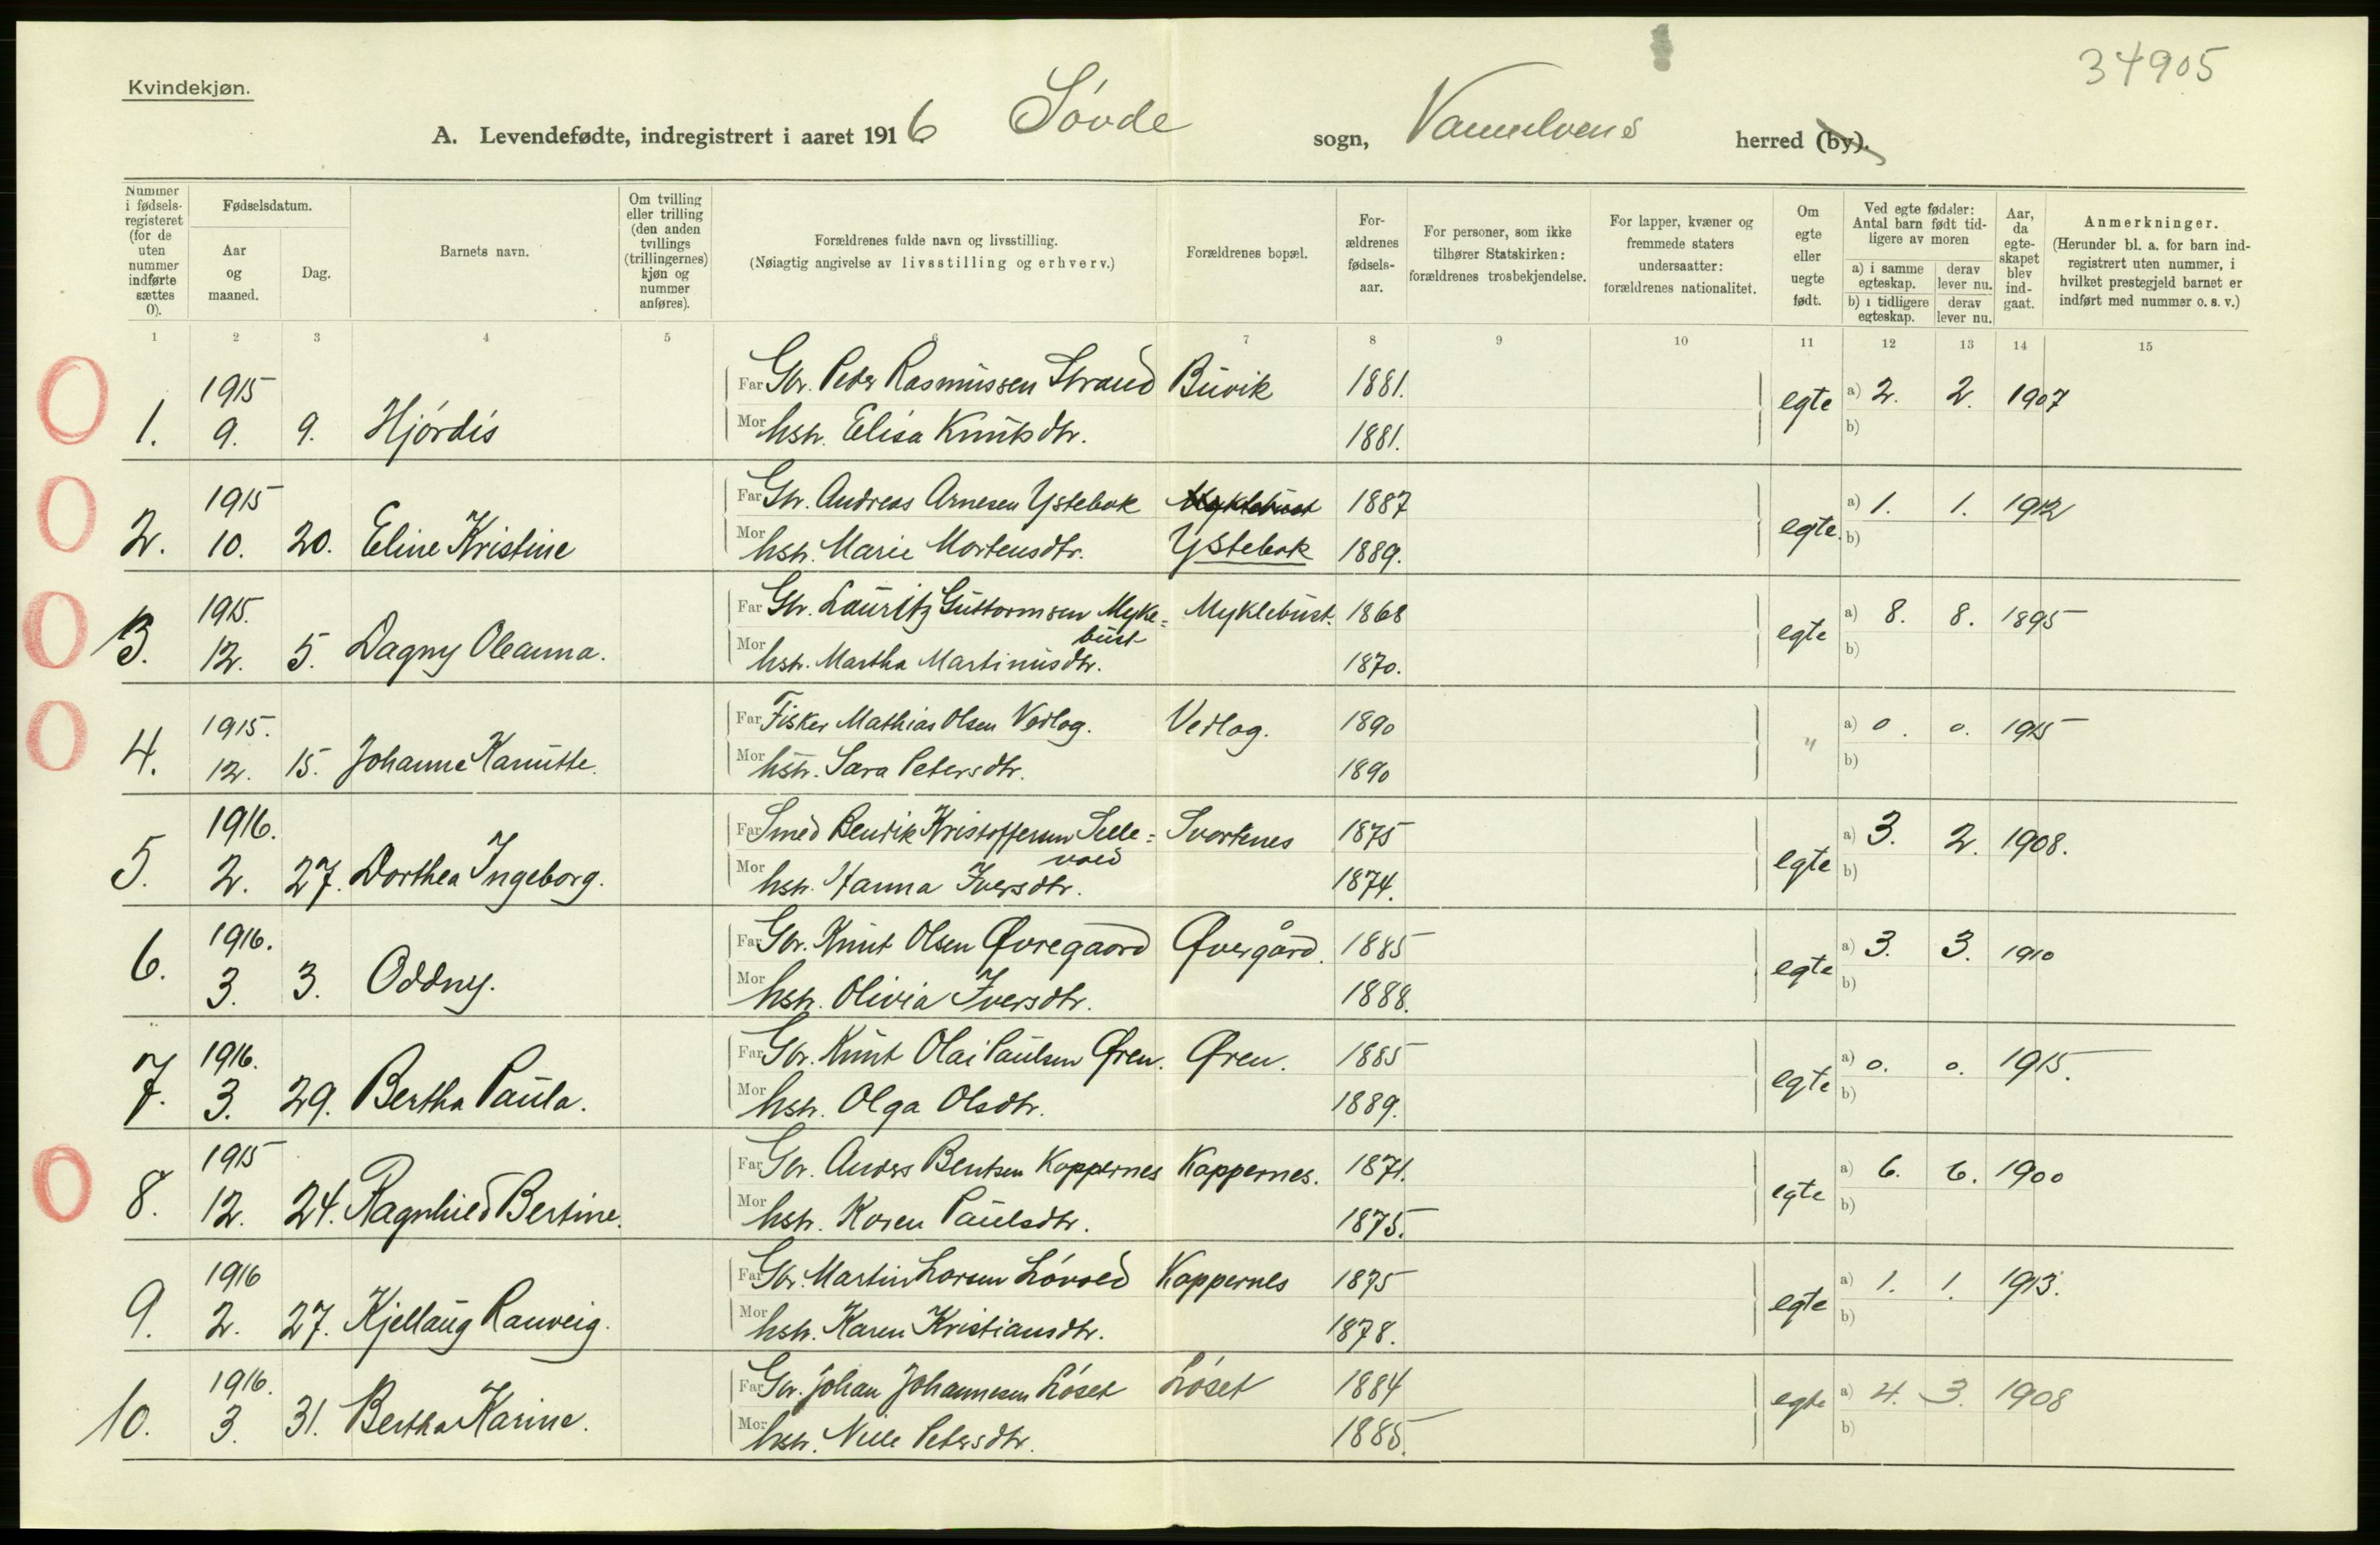 34905
Kvindekjøn.
A. Levendefødte, indregistrert i aaret 1916 Søvde sogn, Vanelvens herred (by).
Nummer i fødsels-registeret (for de uten nummer indførte sættes 0).
Fødselsdatum.
Aar og maaned.
Dag.
Barnets navn.
Om tvilling eller trilling (den anden tvillings (trillingernes) kjøn og nummer anføres).
Forældrenes fulde navn og livsstilling.
(Nøiagtig angivelse av livsstilling og erhverv.)
Forældrenes bopæl.
For-ældrenes fødsels-aar.
For personer, som ikke tilhører Statskirken: forældrenes trosbekjendelse.
For lapper, kvæner og fremmede staters undersaatter: forældrenes nationalitet.
Om egte eller uegte født.
Ved egte fødsler: Antal barn født tid-ligere av moren
a) i samme egteskap. derav lever nu.
b) i tidligere egteskap. derav lever nu.
Aar, da egte-skapet blev ind-gaat.
Anmerkninger.
(Herunder bl. a. for barn ind-registrert uten nummer, i hvilket prestegjeld barnet er indført med nummer o. s. v.)
1 2 3 4 5 6 7 8 9 10 11 12 13 14 15
1915 Far Gbr. Peder Rasmussen Strand Buvik 1881. egte a) 2. 2. 1907
1. 9. 9. Hjørdis Mor hstr. Elisa Knutsdtr. 1881. b)
1915 Far Gbr. Andreas Arnesen Ystebøk Myklebust 1887 egte. a) 1. 1. 1912
2. 10. 20. Eline Kristine Mor hstr. Marie Mortensdtr. Ystebøk 1889. b)
1915. Far Gbr. Lauritz Guttormsen Mykle= Myklebust. 1868 egte a) 8. 8. 1895
bust
3. 12. 5. Dagny Oleanna. Mor hstr. Martha Martinusdtr. 1870. b)
1915. Far Fisker Mathias Olsen Vedlog. Vedlog. 1890 " a) 0. 0. 1915
4. 12. 15. Johanne Kamitte. Mor hstr. Sara Petersdtr. 1890 b)
1916. Far Smed Bendik Kristoffersen Selle= Svortenes 1875 egte a) 3. 2. 1908.
vold
5. 2. 27. Dorthea Ingeborg. Mor hstr. Hanna Iversdtr. 1874. b)
1916. Far Gbr. Knut Olsen Øvregaard Øvergård. 1885 egte a) 3. 3. 1910
6. 3. 3. Oddny. Mor hstr. Olivia Iversdtr. 1888. b)
1916. Far Gbr. Knut Olai Paulsen Øren. Øren. 1885 egte a) 0. 0. 1915.
7. 3. 29. Bertha Paula. Mor hstr. Olga Olsdtr. 1889. b)
1915 Far Gbr. Anders Bentsen Koppernes Koppernes. 1871. egte a) 6. 6. 1900
8. 12. 24. Ragnhild Bertine. Mor hstr. Karen Paulsdtr. 1875. b)
1916 Far Gbr. Martin Larsen Løvold Koppernes 1875 egte a) 1. 1. 1913.
9. 2. 27. Kjellaug Ranveig. Mor hstr. Karen Kristiansdtr. 1878. b)
1916. Far Gbr. Johan Johannesen Løset Løset 1884 egte a) 4. 3. 1908
10. 3. 31. Bertha Karine. Mor hstr. Nille Petersdtr. 1885. b)